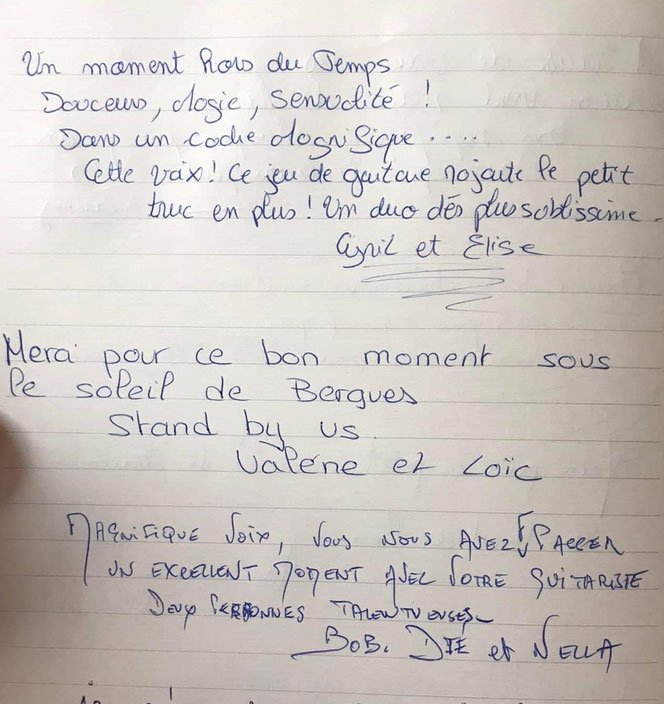 Un moment hors du Temps
Douceur, Magie, Sensualité !
Dans un cadre Magnifique .....
Cette voix ! Ce jeu de guitare rajoute le petit
truc en plus ! Un duo des plus soblissime.
Cyril et Elise
Merci pour ce bon moment sous
le soleil de Bergues
Stand by us
Valérie et Loïc
MAGNIFIQUE VOIX, VOUS NOUS AVEZ FAIT PASSER
UN EXCELLENT MOMENT AVEC VOTRE GUITARISTE
DEUX PERSONNES TALENTUEUSES
BOB. et NELLA